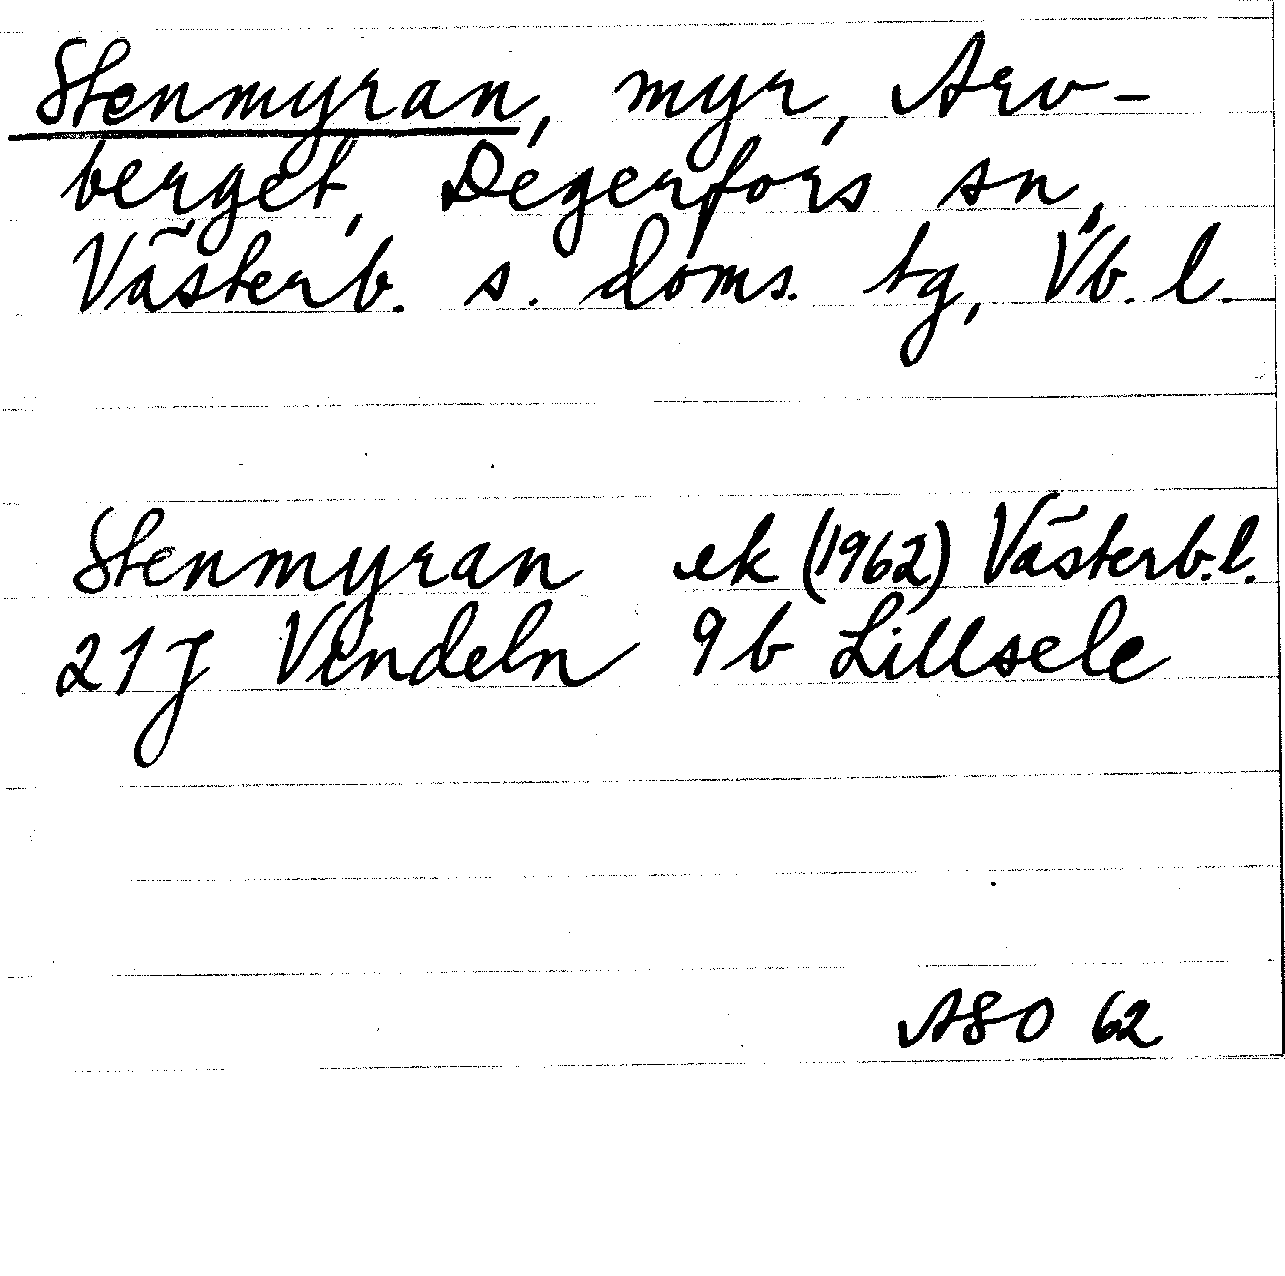 Stenmyran, myr, Arv-
berget, Degerfors sn,
Västerb. s. doms. tg, Vb. l.
Stenmyran ek (1962) Västerb.l.
21J Vindeln 9b Lillsele
ASO 62